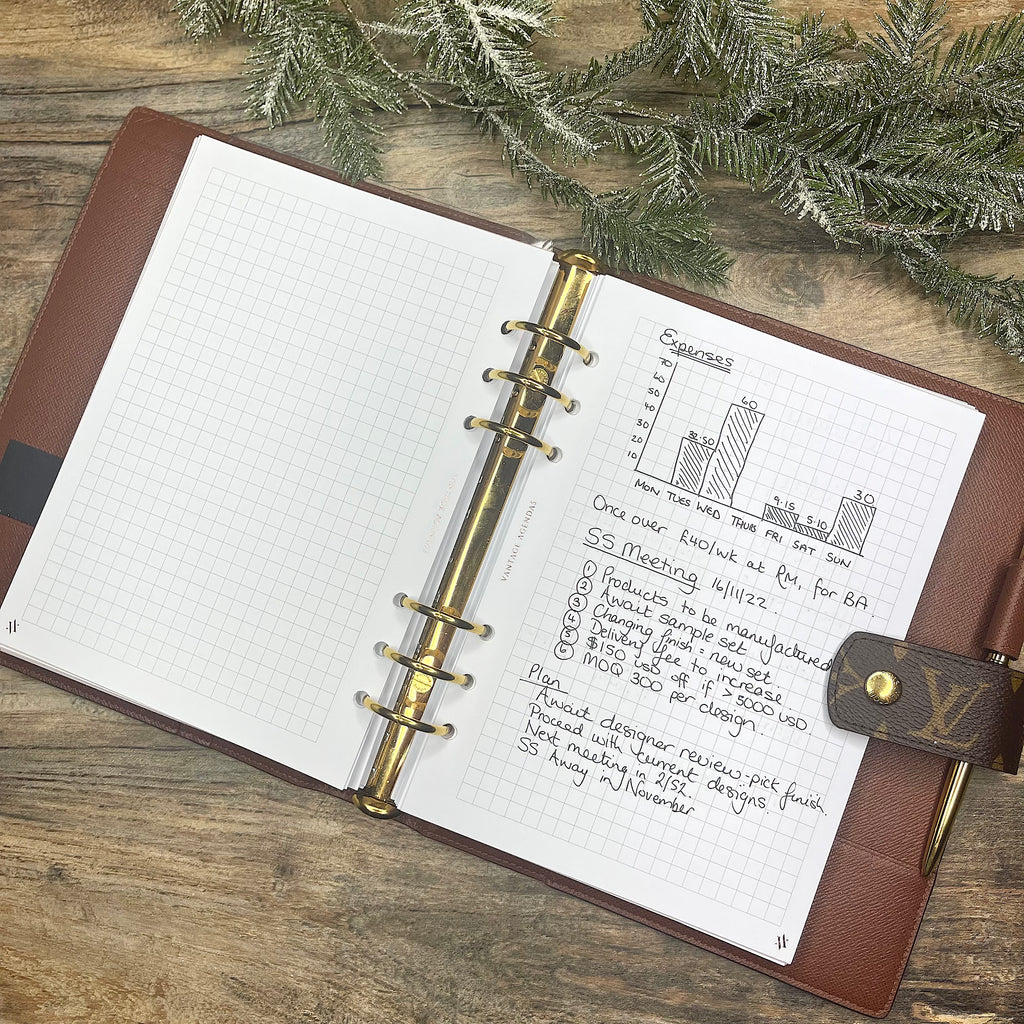 VANTAGE AGENDAS
Expenses
70
60
50
40
30
20
10
32.50
60
9.15
5.10
30
MON TUES WED THURS FRI SAT SUN
Once over £40/wk at RM, for BA
SS Meeting 16/11/22.
① Products to be manufactured
② Await sample set
③ Changing finish = new set
④ Delivery fee to increase
⑤ $150 USD off if >5000 USD.
⑥ MOQ 300 per design.
Plan
Await designer review - pick finish.
Proceed with current designs.
Next meeting in 2/52.
SS Away in November
LV